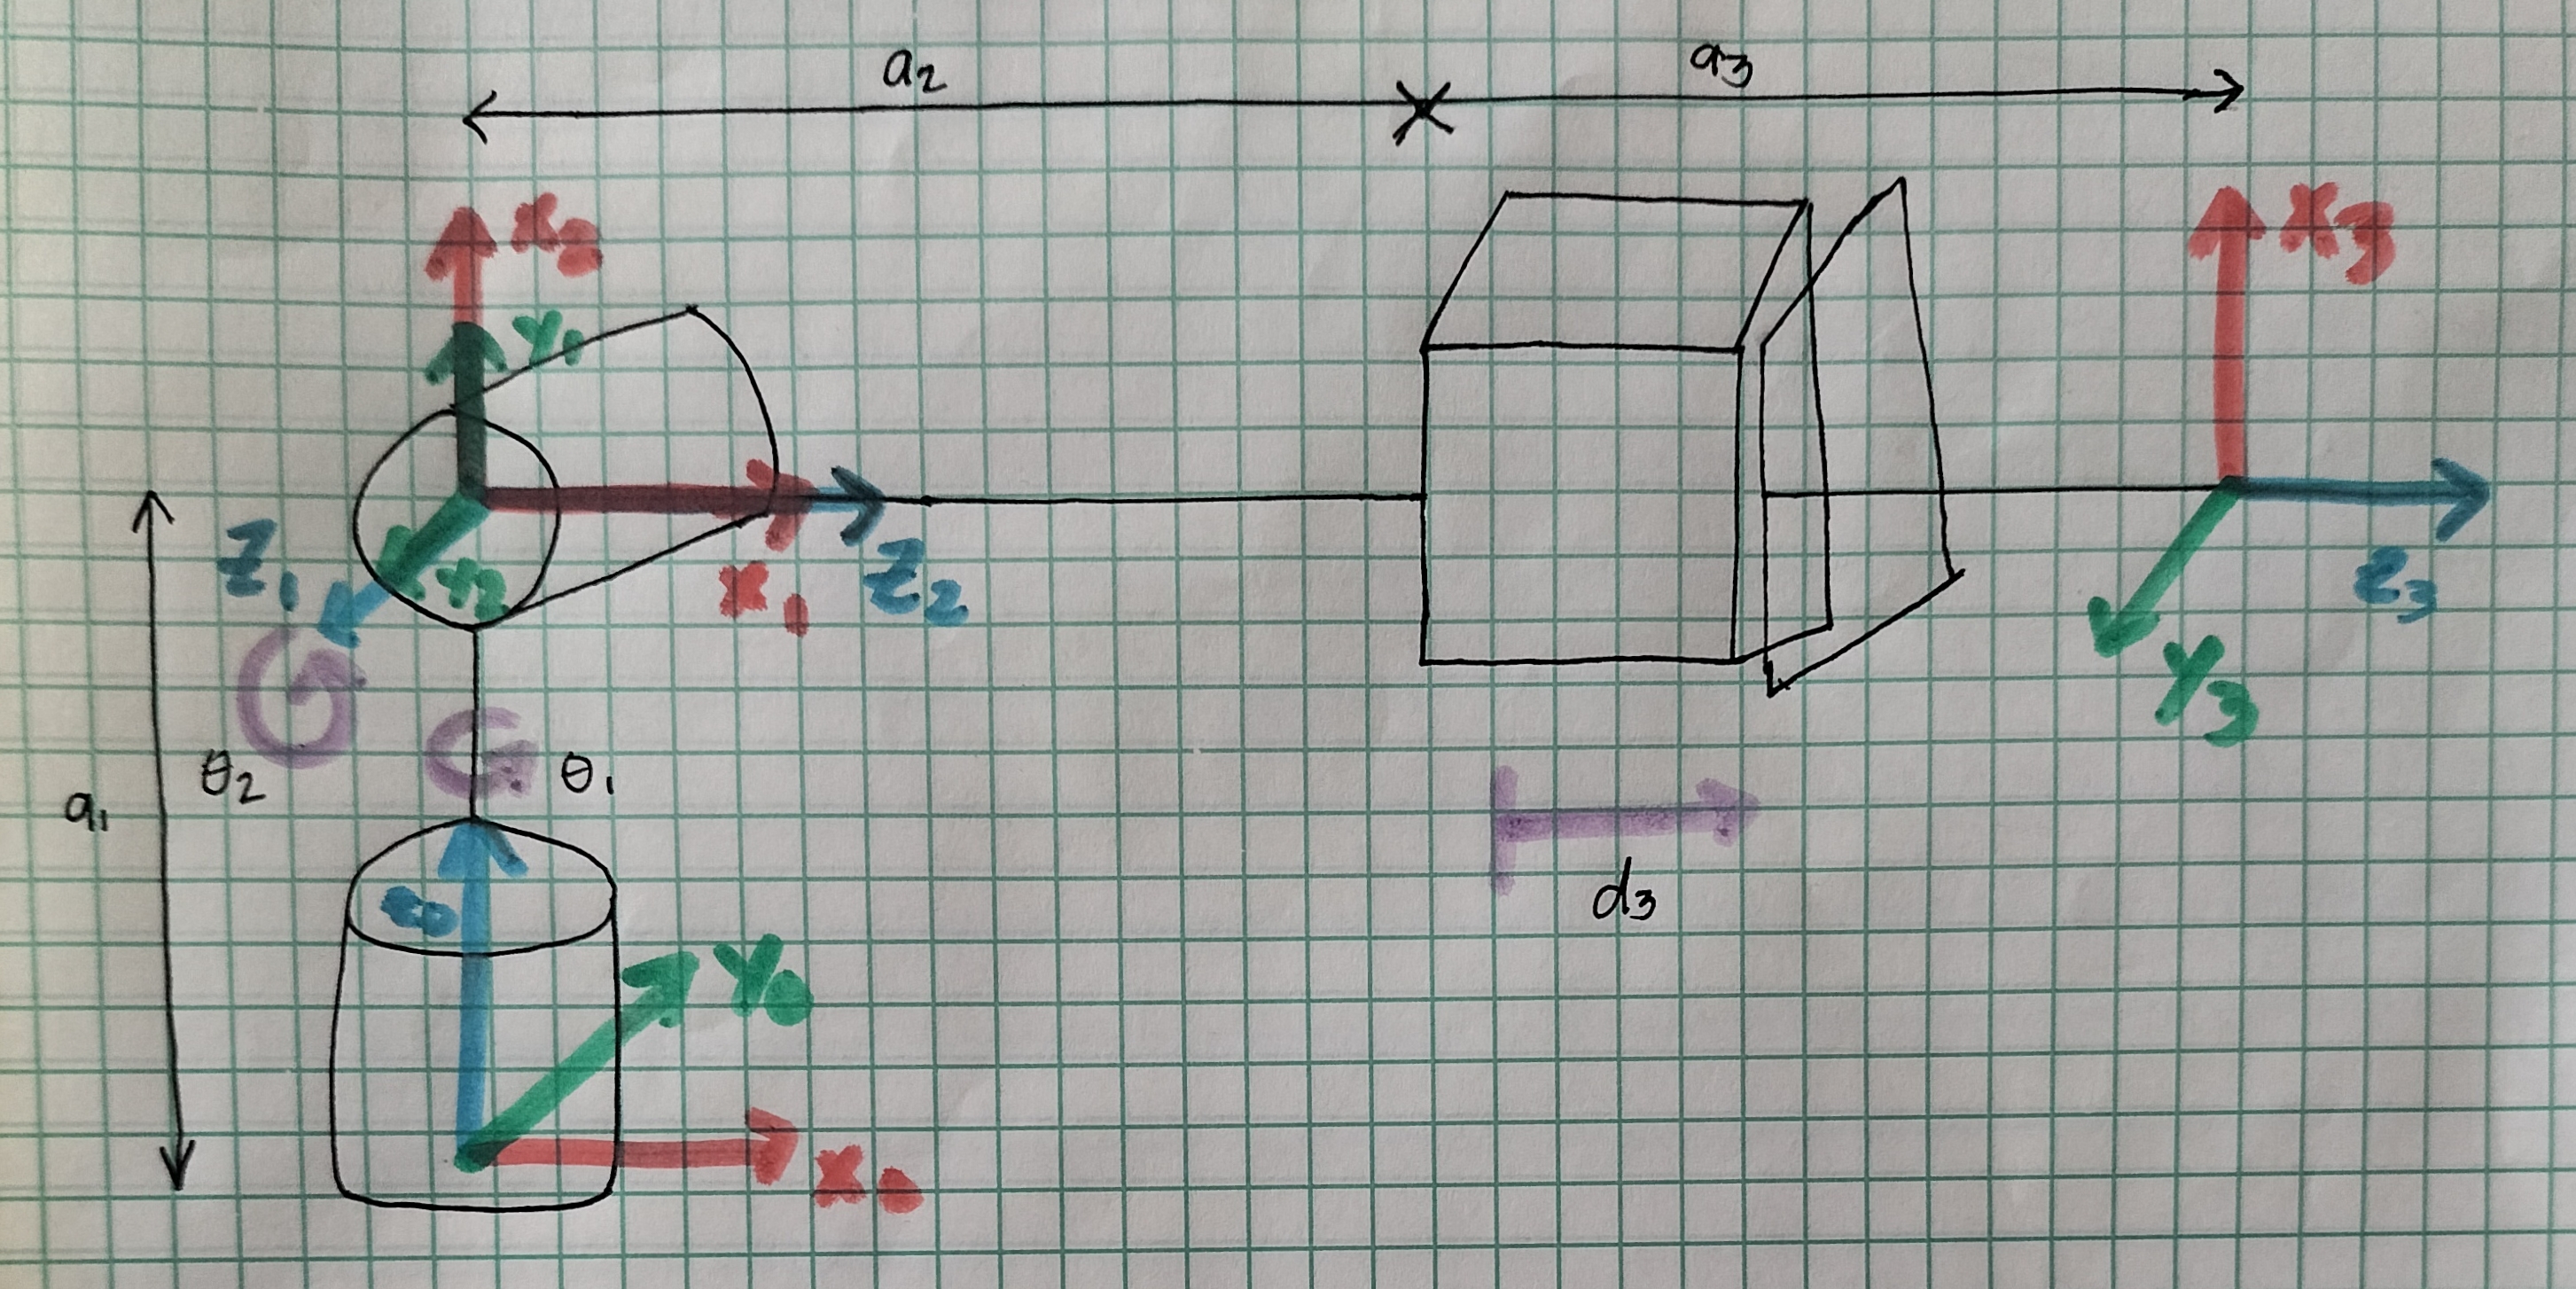 a₂
a₃
x₂
x₃
Y₁
Z₁
Y₂
x₁
Z₂
Z₃
Y₃
θ₂
θ₁
a₁
d₃
Z₀
Y₀
x₀